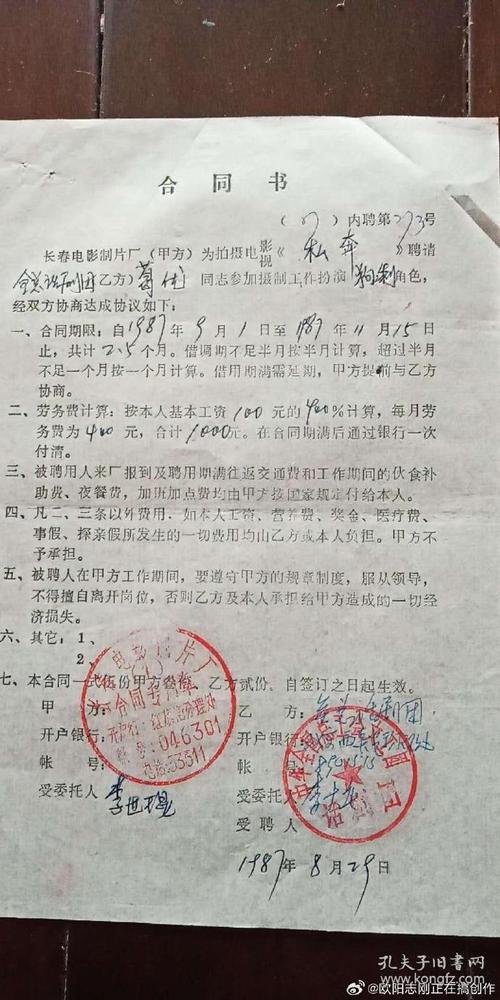 合同书
(87)内聘第273号
长春电影制片厂(甲方)为拍摄电影视《私奔》聘请
全总话剧团(乙方)葛优 同志参加摄制工作扮演 角色,
经双方协商达成协议如下:
一、合同期限:自1987年9月1日至1987年11月15日
止,共计2.5个月。借调期不足半月按半月计算,超过半月
不足一个月按一个月计算。借用期满需延期,甲方提前与乙方
协商。
二、劳务费计算:按本人基本工资100元的400%计算,每月劳
务费为400元,合计1000元。在合同期满后通过银行一次
付清。
三、被聘用人来厂报到及聘用期满往返交通费和工作期间的伙食补
助费、夜餐费,加班加点费均由甲方按国家规定付给本人。
四、凡二、三条以外费用,如本人工资、营养费、奖金、医疗费、
事假、探亲假所发生的一切费用均由乙方或本人负担。甲方不
予承担。
五、被聘人在甲方工作期间,要遵守甲方的规章制度,服从领导,
不得擅自离开岗位,否则乙方及本人承担给甲方造成的一切经
济损失。
六、其它:1、
2、
七、本合同一式伍份甲方叁份,乙方贰份。自签订之日起生效。
甲方: 乙方:全总话剧团
开户银行: 开户银行:
帐号: 帐号:
受委托人 李世琨 受委托人
受聘人
1987年8月29日
电影制片厂
合同专用章
046301
电话:53511
话剧团
孔夫子旧书网
@欧阳志刚正在搞创作